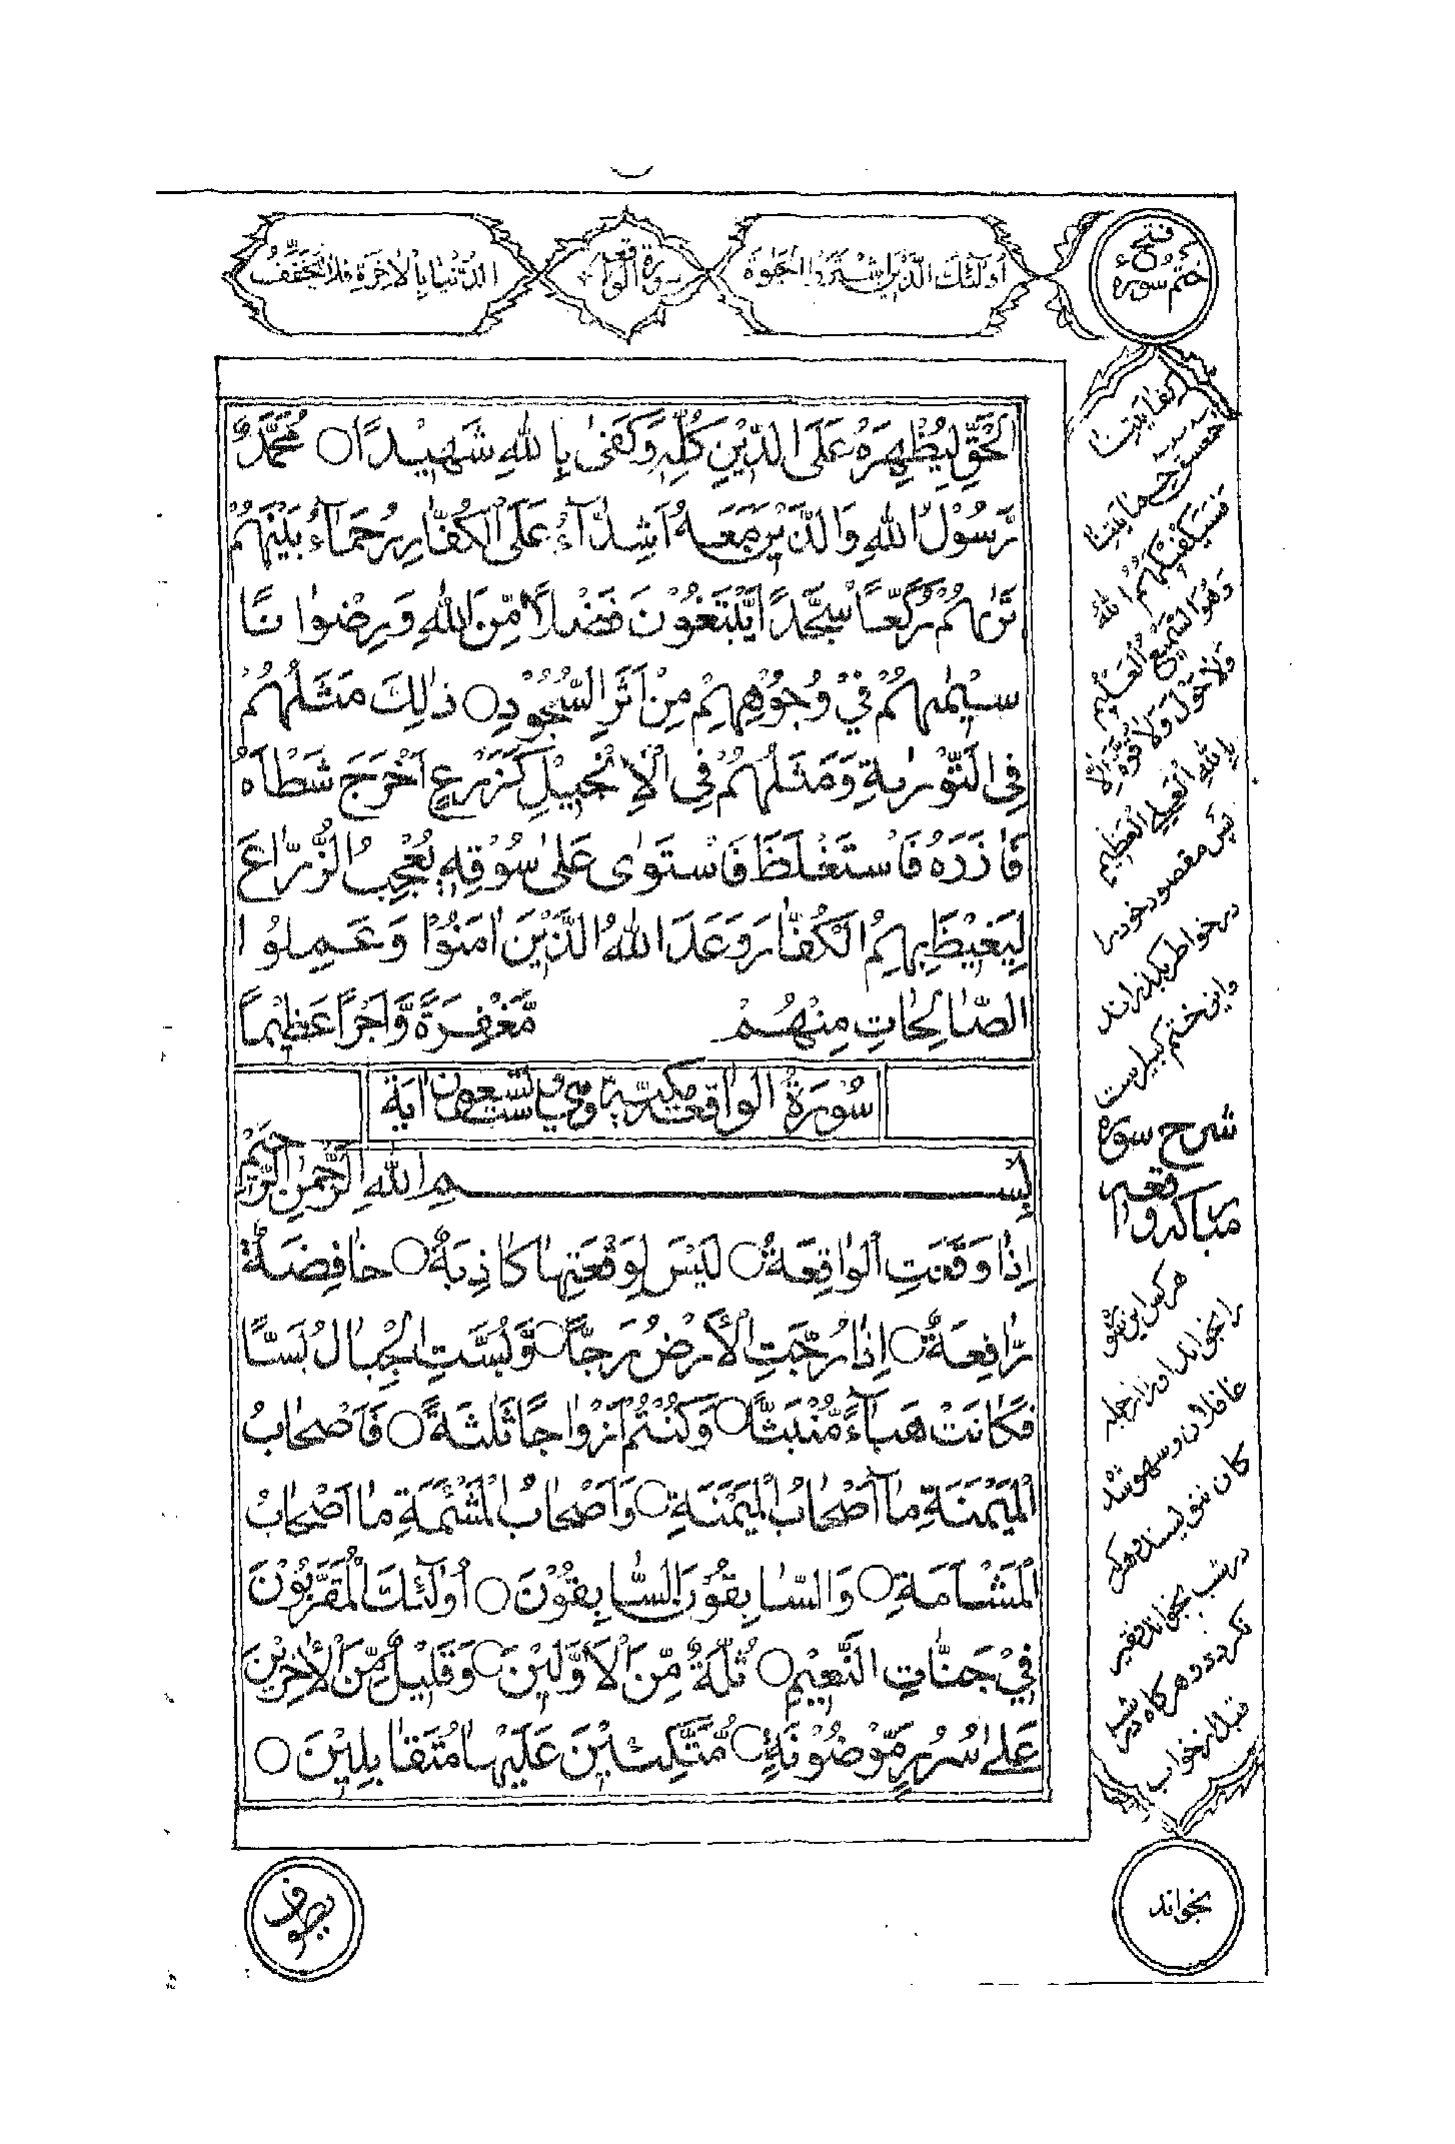 اُولٰٓئِكَ الَّذِيْنَ اشْتَرَوُا الْحَيٰوةَ
سورة الواقعه
الدُّنْيَا بِالْاٰخِرَةِ فَلَا يُخَفَّفُ
ختم سوره فتح
الْحَقِّ لِيُظْهِرَهٗ عَلَى الدِّيْنِ كُلِّهٖ وَكَفٰى بِاللّٰهِ شَهِيْدًا ○ مُحَمَّدٌ
رَّسُوْلُ اللّٰهِ وَالَّذِيْنَ مَعَهٗ اَشِدَّآءُ عَلَى الْكُفَّارِ رُحَمَآءُ بَيْنَهُمْ
تَرٰىهُمْ رُكَّعًا سُجَّدًا يَّبْتَغُوْنَ فَضْلًا مِّنَ اللّٰهِ وَرِضْوَانًا
سِيْمٰىهُمْ فِيْ وُجُوْهِهِمْ مِنْ اَثَرِ السُّجُوْدِ ○ ذٰلِكَ مَثَلُهُمْ
فِى التَّوْرٰىةِ وَمَثَلُهُمْ فِى الْاِنْجِيْلِ كَزَرْعٍ اَخْرَجَ شَطْاَهٗ
فَاٰزَرَهٗ فَاسْتَغْلَظَ فَاسْتَوٰى عَلٰى سُوْقِهٖ يُعْجِبُ الزُّرَّاعَ
لِيَغِيْظَ بِهِمُ الْكُفَّارَ وَعَدَ اللّٰهُ الَّذِيْنَ اٰمَنُوْا وَعَمِلُوا
الصَّالِحَاتِ مِنْهُمْ مَّغْفِرَةً وَّاَجْرًا عَظِيْمًا
سُوْرَةُ الْوَاقِعَه مكيّة وهي ست وتسعون اٰيَة
بِسْمِ اللّٰهِ الرَّحْمٰنِ الرَّحِيْمِ
اِذَا وَقَعَتِ الْوَاقِعَةُ ○ لَيْسَ لِوَقْعَتِهَا كَاذِبَةٌ ○ خَافِضَةٌ
رَّافِعَةٌ ○ اِذَا رُجَّتِ الْاَرْضُ رَجًّا ○ وَّبُسَّتِ الْجِبَالُ بَسًّا
فَكَانَتْ هَبَآءً مُّنْبَثًّا ○ وَكُنْتُمْ اَزْوَاجًا ثَلٰثَةً ○ فَاَصْحَابُ
الْمَيْمَنَةِ مَا اَصْحَابُ الْمَيْمَنَةِ ○ وَاَصْحَابُ الْمَشْئَمَةِ مَا اَصْحَابُ
الْمَشْاَمَةِ ○ وَالسَّابِقُوْنَ السَّابِقُوْنَ ○ اُولٰٓئِكَ الْمُقَرَّبُوْنَ
فِيْ جَنَّاتِ النَّعِيْمِ ○ ثُلَّةٌ مِّنَ الْاَوَّلِيْنَ ○ وَقَلِيْلٌ مِّنَ الْاٰخِرِيْنَ
عَلٰى سُرُرٍ مَّوْضُوْنَةٍ ○ مُّتَّكِئِيْنَ عَلَيْهَا مُتَقَابِلِيْنَ ○
كفايتنا
حمعسق حمايتنا
فَسَيَكْفِيْكَهُمُ اللّٰهُ
وَهُوَ السَّمِيْعُ الْعَلِيْمُ
وَلَا حَوْلَ وَلَا قُوَّةَ اِلَّا
بِاللّٰهِ الْعَلِيِّ الْعَظِيْمِ
پس مقصود خود را
در خواطر بگذراند
و این ختم کبیر است
شرح سوره
مبارکه واقعه
هر کس این سوره
را بخواند او را از جمله
غافلان
کان ننویسند هر که
در شب بخواند فقیر
نگردد و هر گاه در شب
قبل از خواب
بخواند
يطوف